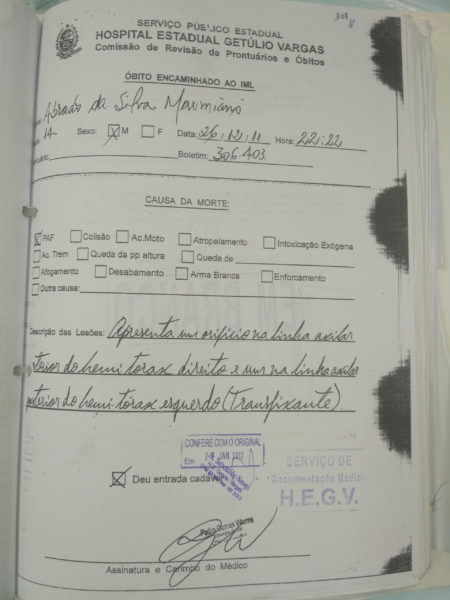 309
SERVIÇO PÚBLICO ESTADUAL
HOSPITAL ESTADUAL GETÚLIO VARGAS
Comissão de Revisão de Prontuários e Óbitos
ÓBITO ENCAMINHADO AO IML
Abraão da Silva Maximiano
14 Sexo: X M F Data: 26/12/11 Hora: 22:22
Boletim: 306.403
CAUSA DA MORTE:
X PAF Colisão Ac.Moto Atropelamento Intoxicação Exógena
Ac. Trem Queda da pp altura Queda de
Afogamento Desabamento Arma Branca Enforcamento
Outra causa:
Descrição das Lesões: Apresenta um orifício na linha axilar
terior do hemitorax direito e um na linha axilar
nterior do hemitorax esquerdo (Transfixante).
CONFERE COM O ORIGINAL
Em JAN
SERVIÇO DE
Documentação Médica
H.E.G.V.
X Deu entrada cadáver
Assinatura e Carimbo do Médico